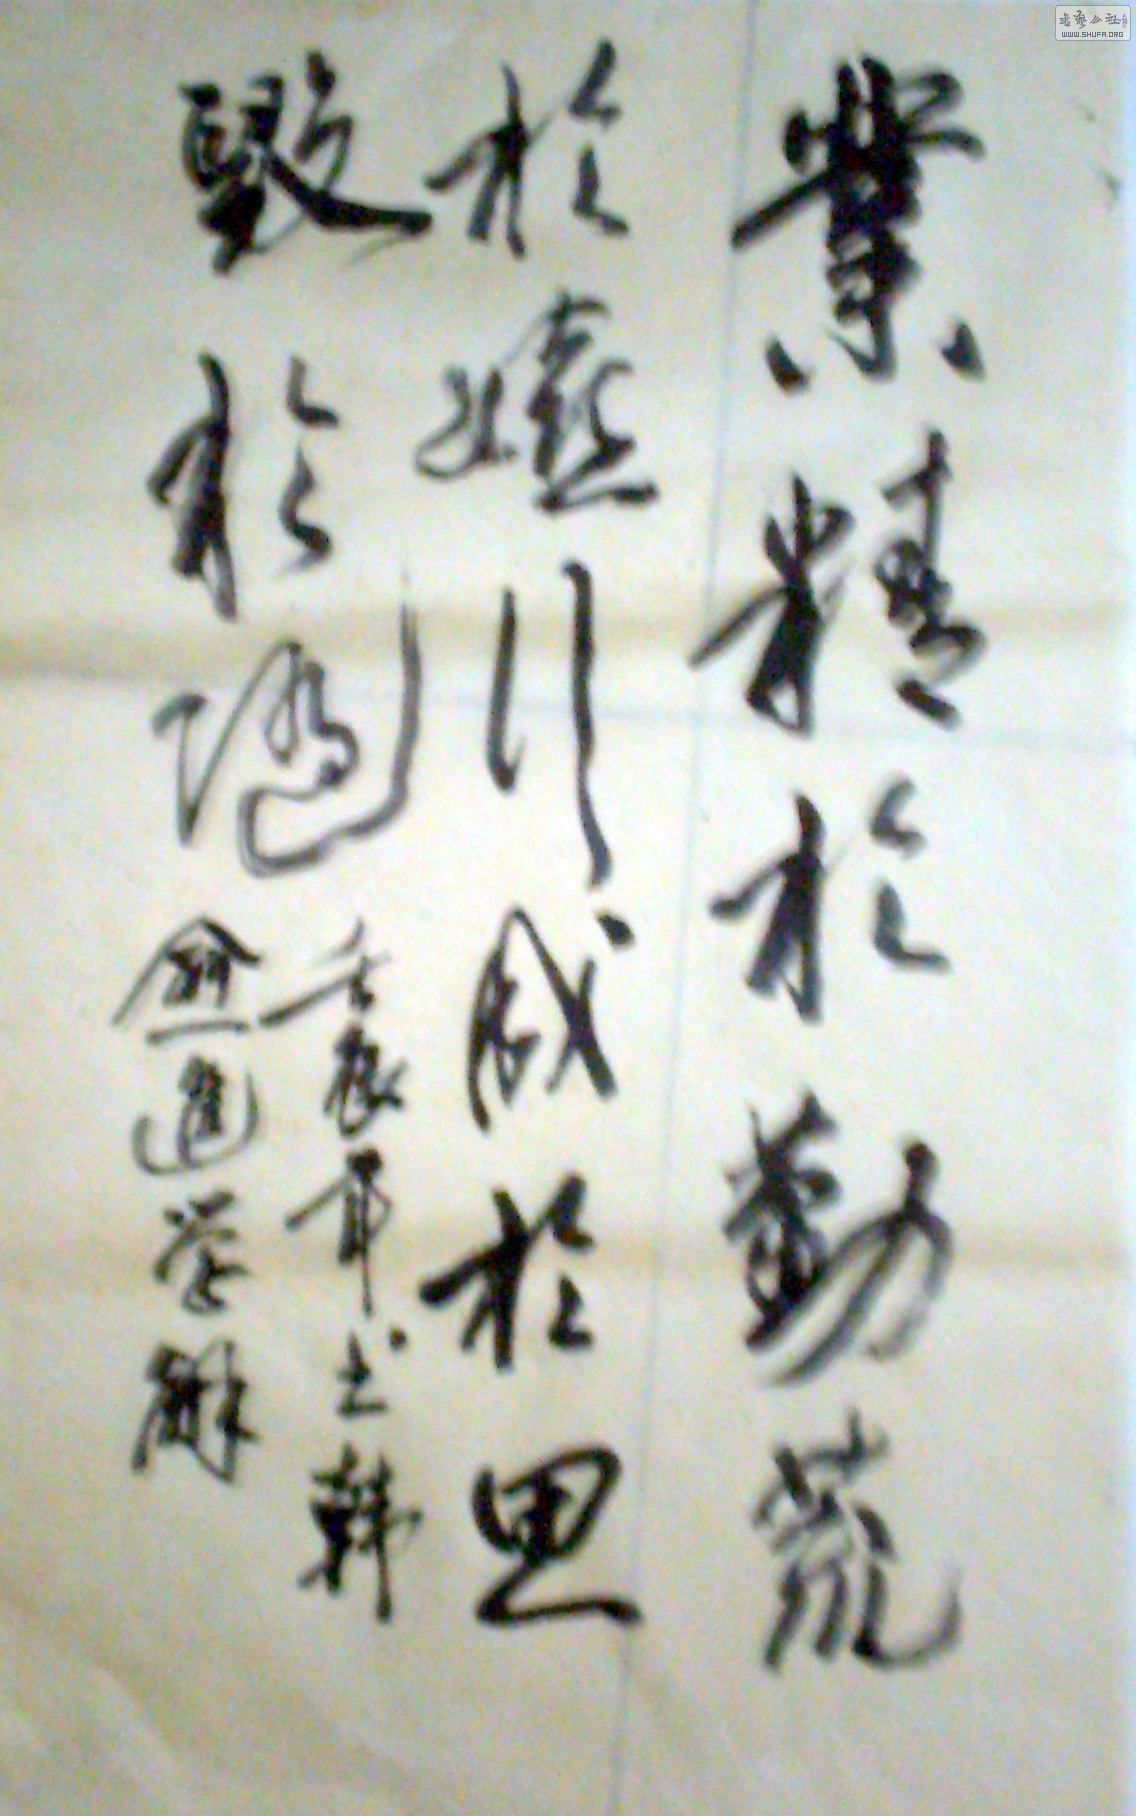 業精於勤荒
於嬉行成於思
毀於隨
年書韓
愈進學解
書藝公社
WWW.SHUFA.ORG